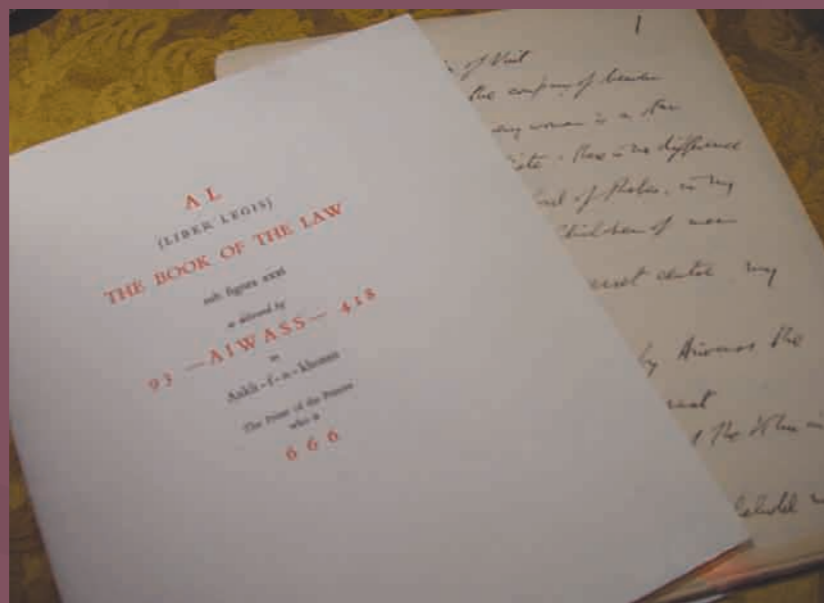 A L
(LIBER LEGIS)
THE BOOK OF THE LAW
sub figura xxxi
as delivered by
93 —AIWASS— 418
to
Ankh-f-n-khonsu
The Priest of the Princes
who is
6 6 6
1
of Nuit
the company of heaven
woman is a star
there is no difference
of Thebes, in my
Children of men
secret centre my
by Aiwass the
the